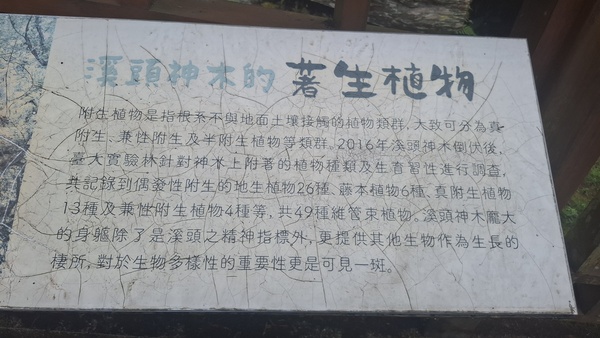 溪頭神木的 著生植物
附生植物是指根系不與地面土壤接觸的植物類群，大致可分為真
附生、兼性附生及半附生植物等類群。2016年溪頭神木倒伏後，
臺大實驗林針對神木上附著的植物種類及生育習性進行調查，
共記錄到偶發性附生的地生植物26種、藤本植物6種、真附生植物
13種及兼性附生植物4種等，共49種維管束植物。溪頭神木龐大
的身軀除了是溪頭之精神指標外，更提供其他生物作為生長的
棲所，對於生物多樣性的重要性更是可見一斑。